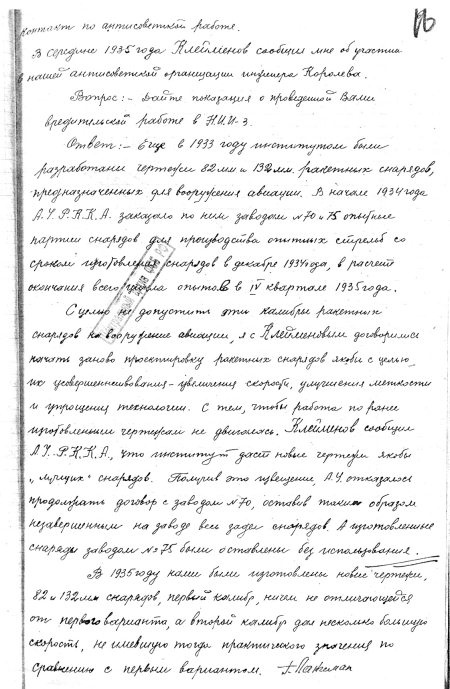 контакт по антисоветской работе.
В середине 1935 года Клейменов сообщил мне об участии
в нашей антисоветской организации инженера Королева.
Вопрос: - Дайте показания о проведенной Вами
вредительской работе в Н.И.И-3.
Ответ: - Еще в 1933 году институтом были
разработаны чертежи 82 мм и 132 мм. ракетных снарядов,
предназначенных для вооружения авиации. В начале 1934 года
А.У.Р.К.К.А. заказало по ним заводам №70 и 75 опытные
партии снарядов для производства опытных стрельб со
сроком изготовления снарядов в декабре 1934 года, в расчете
окончания всего цикла опытов в IV квартале 1935 года.
С целью не допустить эти калибры ракетных
снарядов на вооружение авиации, я с Клейменовым договорились
начать заново проектировку ракетных снарядов якобы с целью
их усовершенствования - увеличения скорости, улучшения меткости
и упрощения технологии. С тем, чтобы работа по ранее
изготовленным чертежам не двигалась, Клейменов сообщил
А.У.Р.К.К.А., что институт даст новые чертежи якобы
„лучших" снарядов. Получив это извещение, А.У. отказалось
продолжать договор с заводом №70, оставив таким образом
незавершенным на заводе весь задел снарядов. А изготовленные
снаряды заводом №75 были оставлены без использования.
В 1935 году нами были изготовлены новые чертежи,
82 и 132 мм снарядов, первый калибр, ничем не отличающейся
от первого варианта, а второй калибр дал несколько большую
скорость, не имевшую тогда практического значения по
сравнению с первым вариантом. Г. Лангемак